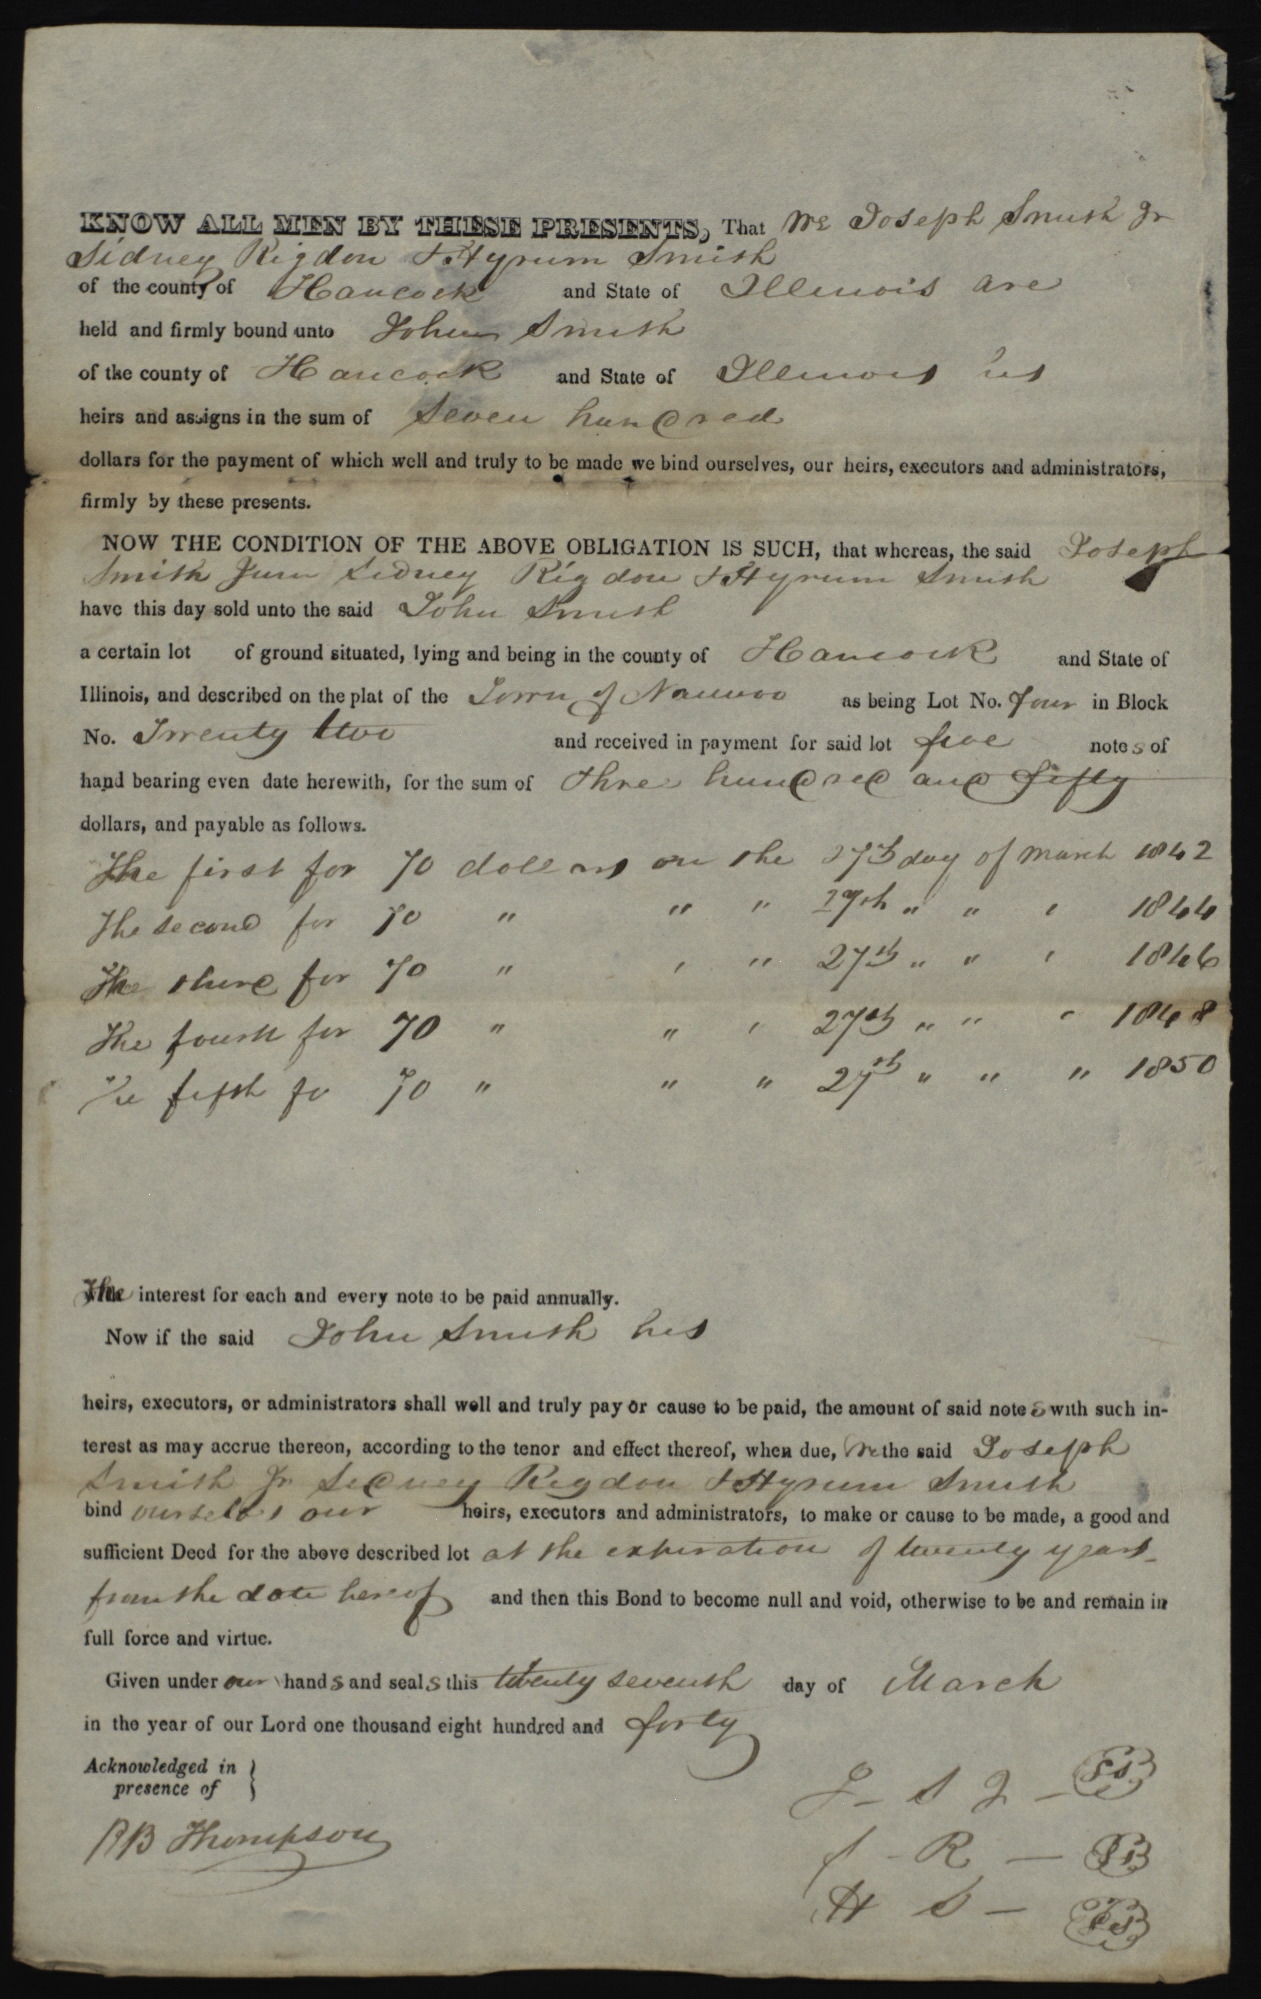 KNOW ALL MEN BY THESE PRESENTS, That We Joseph Smith Jr
Sidney Rigdon & Hyrum Smith
of the county of Hancock and State of Illinois are
held and firmly bound unto John Smith
of the county of Hancock and State of Illinois his
heirs and assigns in the sum of Seven hundred
dollars for the payment of which well and truly to be made we bind ourselves, our heirs, executors and administrators,
firmly by these presents.
NOW THE CONDITION OF THE ABOVE OBLIGATION IS SUCH, that whereas, the said Joseph
Smith Junr Sidney Rigdon & Hyrum Smith
have this day sold unto the said John Smith
a certain lot of ground situated, lying and being in the county of Hancock and State of
Illinois, and described on the plat of the Town of Nauvoo as being Lot No. Four in Block
No. Twenty two and received in payment for said lot five notes of
hand bearing even date herewith, for the sum of three hundred and fifty
dollars, and payable as follows.
The first for 70 dollars on the 27th day of March 1842
The second for 70 " " " 27th " " ' 1844
The third for 70 " ' " 27th " " ' 1846
The fourth for 70 " " ' 27th " " ' 1848
The fifth for 70 " " " 27th " " " 1850
The interest for each and every note to be paid annually.
Now if the said John Smith his
heirs, executors, or administrators shall well and truly pay or cause to be paid, the amount of said notes with such in-
terest as may accrue thereon, according to the tenor and effect thereof, when due, We the said Joseph
Smith Jr Sidney Rigdon & Hyrum Smith
bind ourselves our heirs, executors and administrators, to make or cause to be made, a good and
sufficient Deed for the above described lot at the expiration of twenty years
from the date hereof and then this Bond to become null and void, otherwise to be and remain in
full force and virtue.
Given under our hands and seals this twenty seventh day of March
in the year of our Lord one thousand eight hundred and forty
Acknowledged in }
presence of
J - S J - LS
R B Thompson
S - R - LS
H S - LS